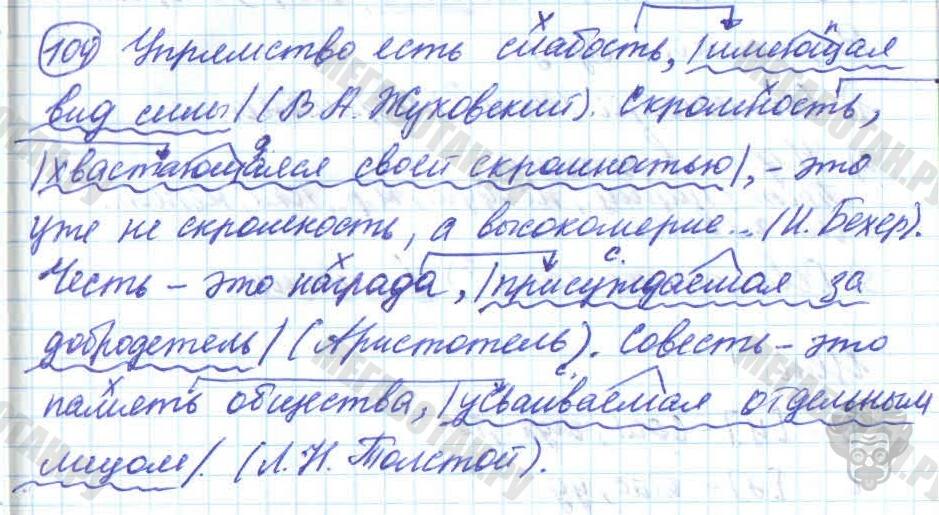 109 Упрямство есть слабость, |имеющая
вид силы| (В. А. Жуковский). Скромность,
|хвастающаяся своей скромностью|, - это
уже не скромность, а высокомерие... (И. Бехер).
Честь - это награда, |присуждаемая за
добродетель| (Аристотель). Совесть - это
память общества, |усваиваемая отдельным
лицом|. (Л. Н. Толстой).
МЕГАБОТАН.РУ